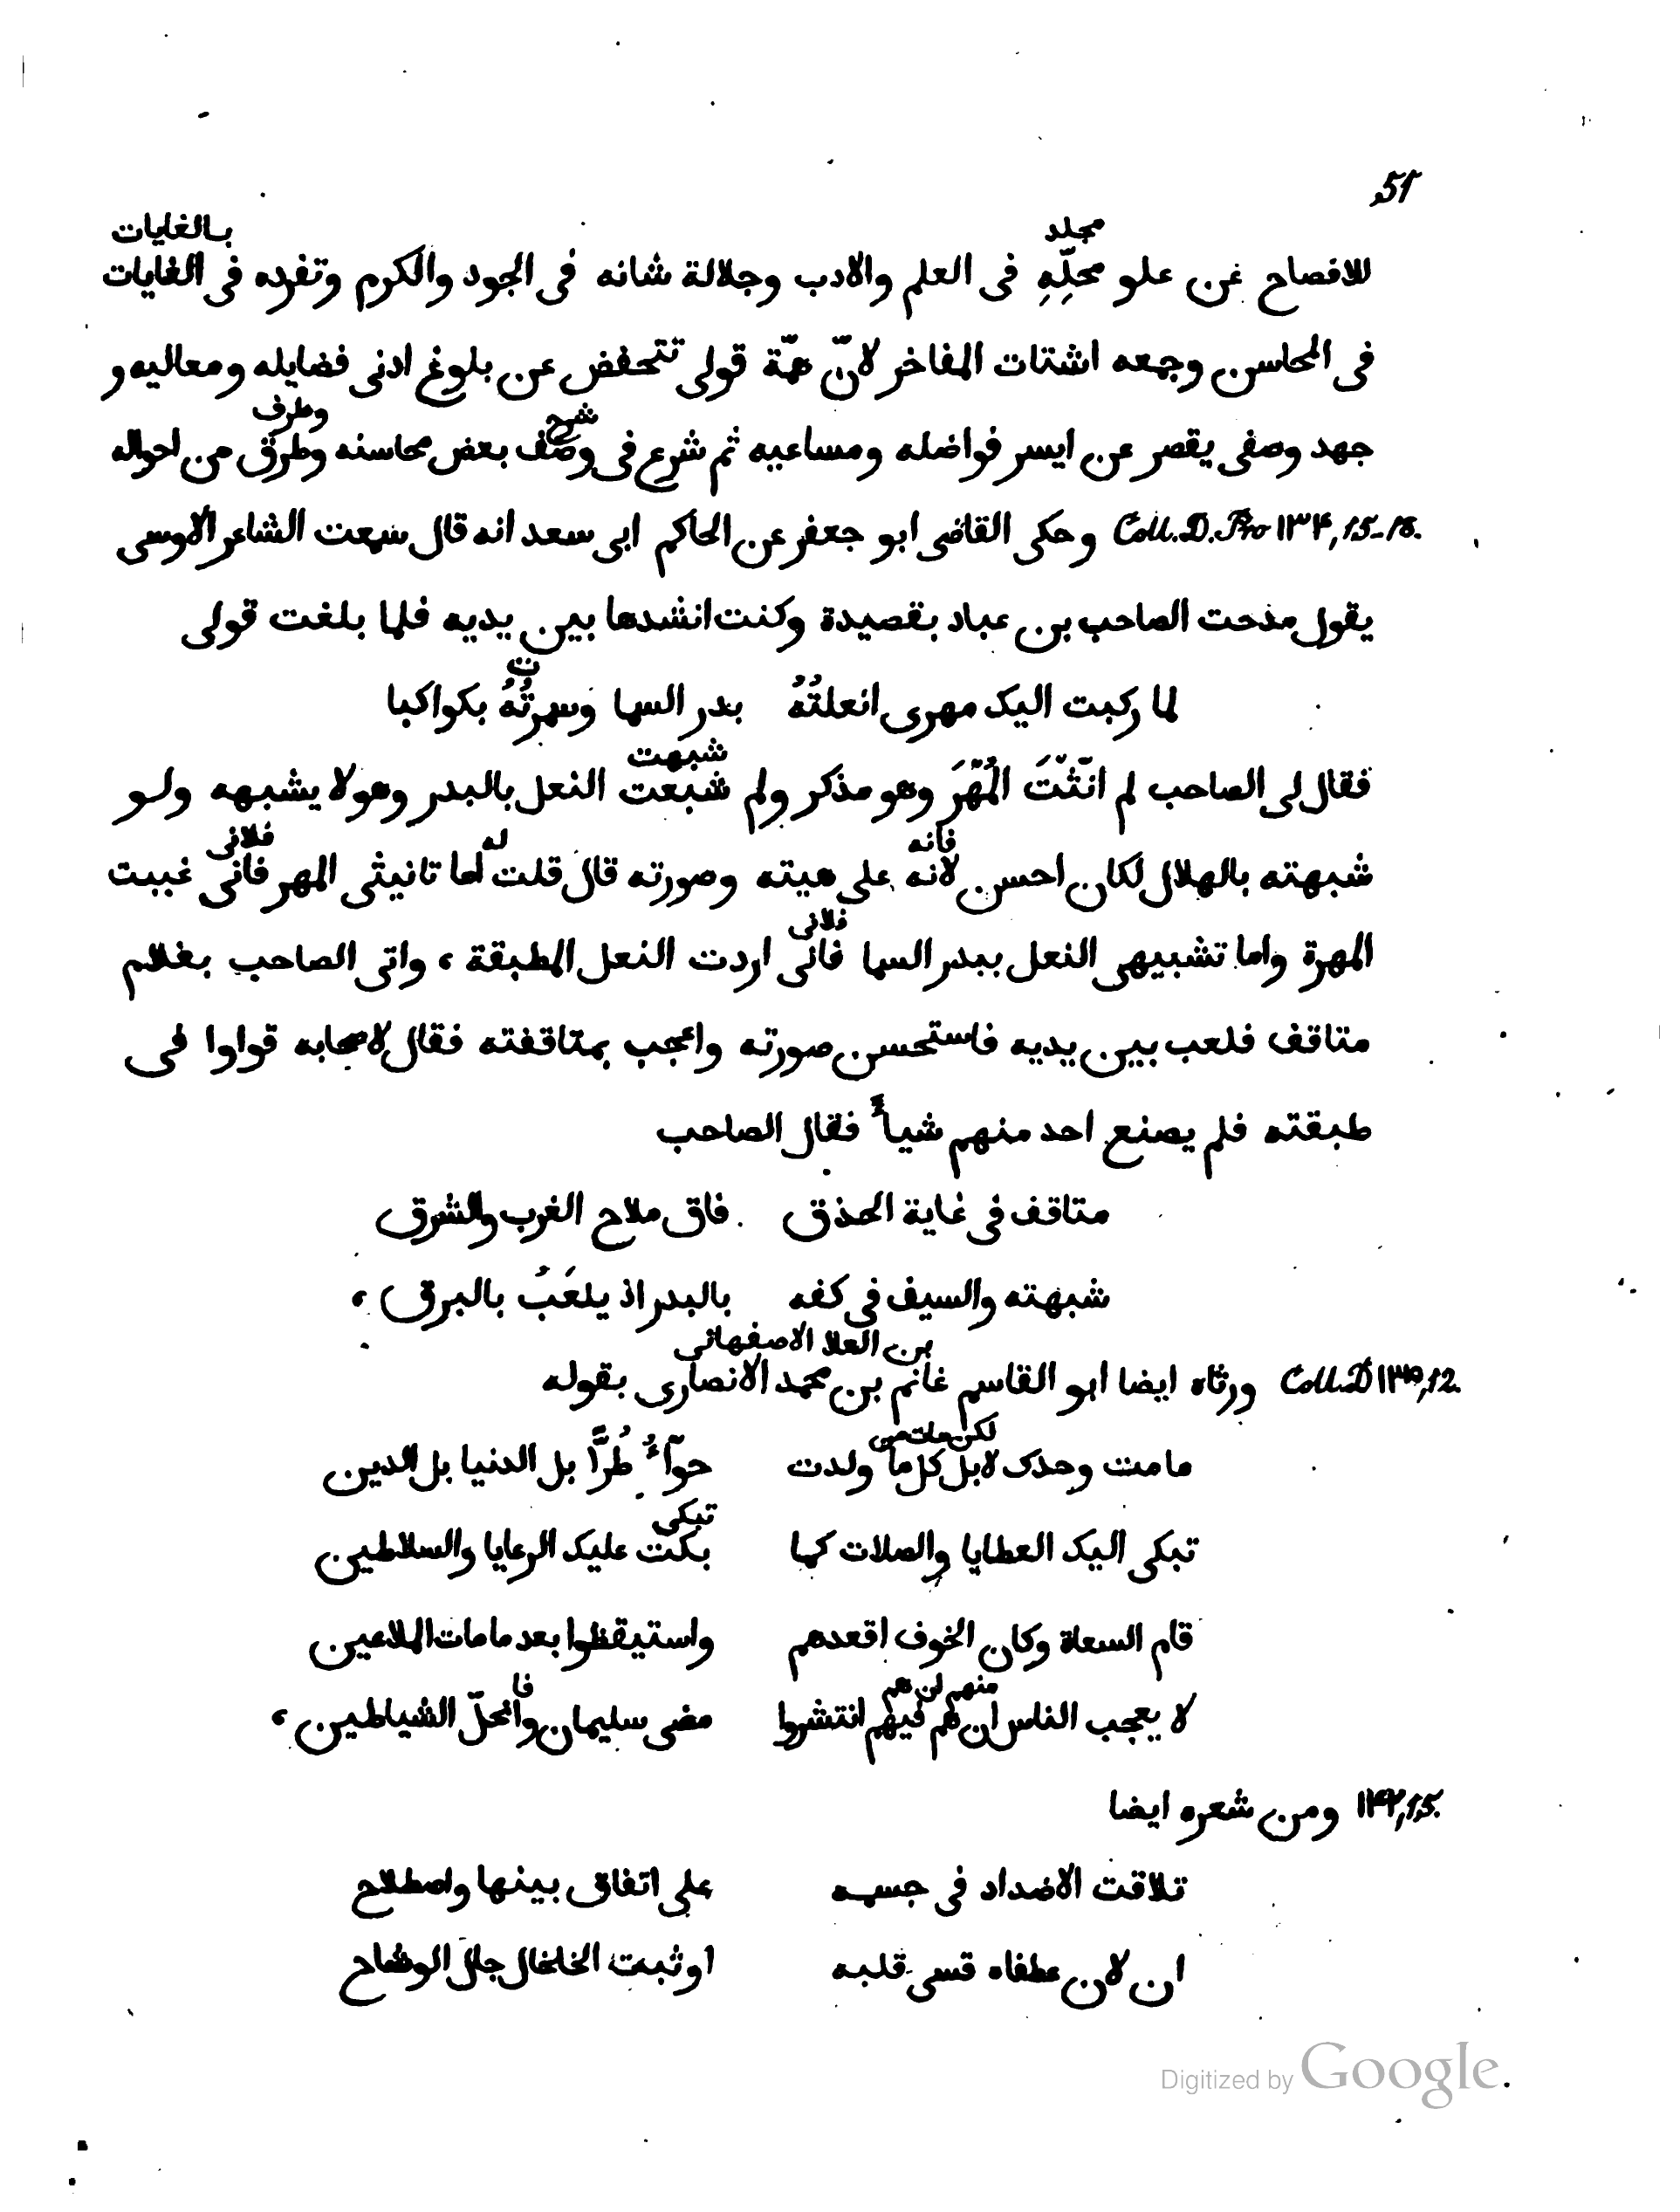 51
بالغايات
مجلد
للافصاح عن علو محلِّهِ فى العلم والادب وجلالة شانه فى الجود والكرم وتفرده فى الغايات
فى المحاسن وجمعه اشتات المفاخر لانّ همّة قولى تنخفض عن بلوغ ادنى فضايله ومعاليه و
شرح وطرف
جهد وصفى يقصر عن ايسر فواضله ومساعيه ثم شرع فى وصف بعض محاسنه وطرق من احواله
Coll. D. Pro ١٣۴, 15-18. وحكى القاضى ابو جعفر عن الحاكم ابى سعد انه قال سمعت الشاعر الاوسى
يقول مدحت الصاحب بن عباد بقصيدة وكنت انشدها بين يديه فلما بلغت قولى
ت
لما ركبت اليك مهرى انعلتُهُ بدر السما وسمرتُهُ بكواكبا
شبهت
فقال لى الصاحب لم انّثْتَ المُهْرَ وهو مذكر ولم شبعت النعل بالبدر وهو لا يشبهه ولو
فانه له فلانى
شبهته بالهلال لكان احسن لانه على هيته وصورته قال قلت اما تانيثى المهر فانى غببت
فلانى
المهرة واما تشبيهى النعل ببدر السما فانى اردت النعل المطبقة ، واتى الصاحب بغلام
متاقف فلعب بين يديه فاستحسن صورته واعجب بمتاقفته فقال لاصحابه قواوا فى
طبقته فلم يصنع احد منهم شيأً فقال الصاحب
متاقف فى غاية الحذق فاق ملاح الغرب والشرق
شبهته والسيف فى كفه بالبدر اذ يلعَبُ بالبرق ،
بن العلا الاصفهانى
Coll. D ١٣٥, 12. ورثاه ايضا ابو القاسم غانم بن محمد الانصارى بقوله
لكن مات من
ما مت وحدك لا بل كل ما ولدت حوّآءُ طُرًّا بل الدنيا بل الدين
تبكى
تبكى اليك العطايا والصلات كما بكت عليك الرعايا والسلاطين
قام السعاة وكان الخوف اقعدهم واستيقظوا بعد ما مات الملاعين
منهم ان هم فا
لا يعجب الناس ان هم فيهم انتشروا مضى سليمان وانحلّ الشياطين ،
١۴٢, 15. ومن شعره ايضا
تلاقت الاضداد فى جسمه على اتفاق بينها واصطلاح
ان لان عطفاه قسى قلبه او ثبت الخلخال جال الوشاح
Digitized by Google